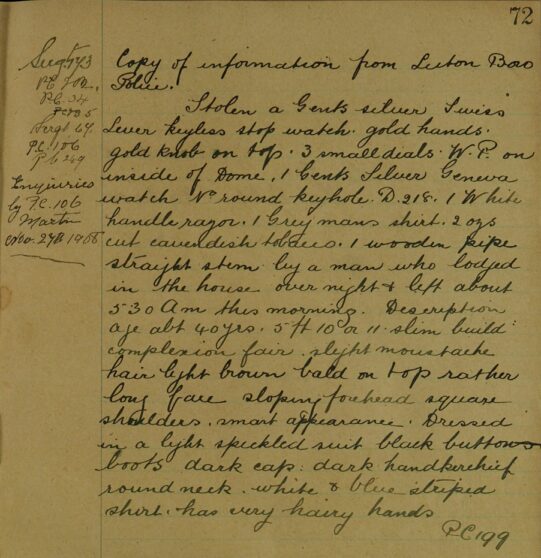 72
Sergt 573
P.C. 102,
P.C. 34
Sergt 67
P.C. 106
P.C. 249
Enquiries
by P.C. 106
Martin
Nov. 27th 1908
Copy of information from Luton Boro
Police.
Stolen a Gents silver Swiss
Lever keyless stop watch. gold hands.
gold knob on top. 3 small dials. W.P. on
inside of Dome, 1 Gents Silver Geneva
watch No round keyhole. D.218. 1 White
handle razor. 1 Grey mans shirt. 2 ozs
cut cavendish tobacco. 1 wooden pipe
straight stem by a man who lodged
in the house over night & left about
5.30 Am this morning. Description
age abt 40 yrs. 5 ft 10 or 11. slim build
complexion fair. slight moustache
hair light brown bald on top rather
long face sloping forehead square
shoulders. smart appearance. Dressed
in a light speckled suit black button
boots dark cap: dark handkerchief
round neck. white & blue striped
shirt. has very hairy hands
P.C. 199